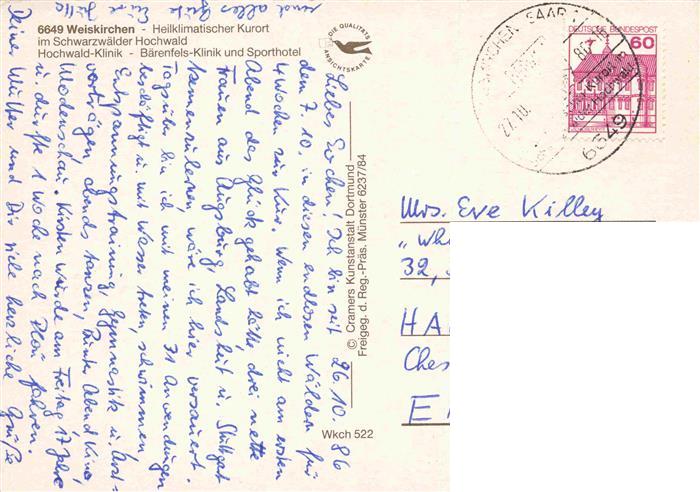 6649 Weiskirchen - Heilklimatischer Kurort
im Schwarzwälder Hochwald
Hochwald-Klinik - Bärenfels-Klinik und Sporthotel
DIE QUALITÄTS
ANSICHTSKARTE
KIRCHEN, SAAR
27.10.
6649
DEUTSCHE BUNDESPOST
60
26.10.86
Liebes Evchen! Ich bin seit
dem 7.10. in diesen endlosen Wäldern für
4 Wochen zur Kur. Wenn ich nicht am ersten
Abend das Glück gehabt hätte, drei nette
Frauen aus Augsburg, Landshut u. Stuttgart
kennenzulernen wäre ich hier versauert.
Tagsüber bin ich mit meinen 71 Anwendungen
beschäftigt u. mit Wassertreten, schwimmen
Entspannungstraining, Gymnastik u. Arzt-
vorträgen, abends tanzen, bunte Abend Kino,
Modenschau. Kirsten wurde am Freitag 17 Jahre
u. durfte 1 Woche nach fahren.
Deine Mutter und Dir viele herzliche Grüße
und alles Gute
© Cramers Kunstanstalt Dortmund
Freigeg. d. Reg.-Präs. Münster 6237/84
Wkch 522
Mrs. Eve Killey
„Wh
32,
HA
Ches
E